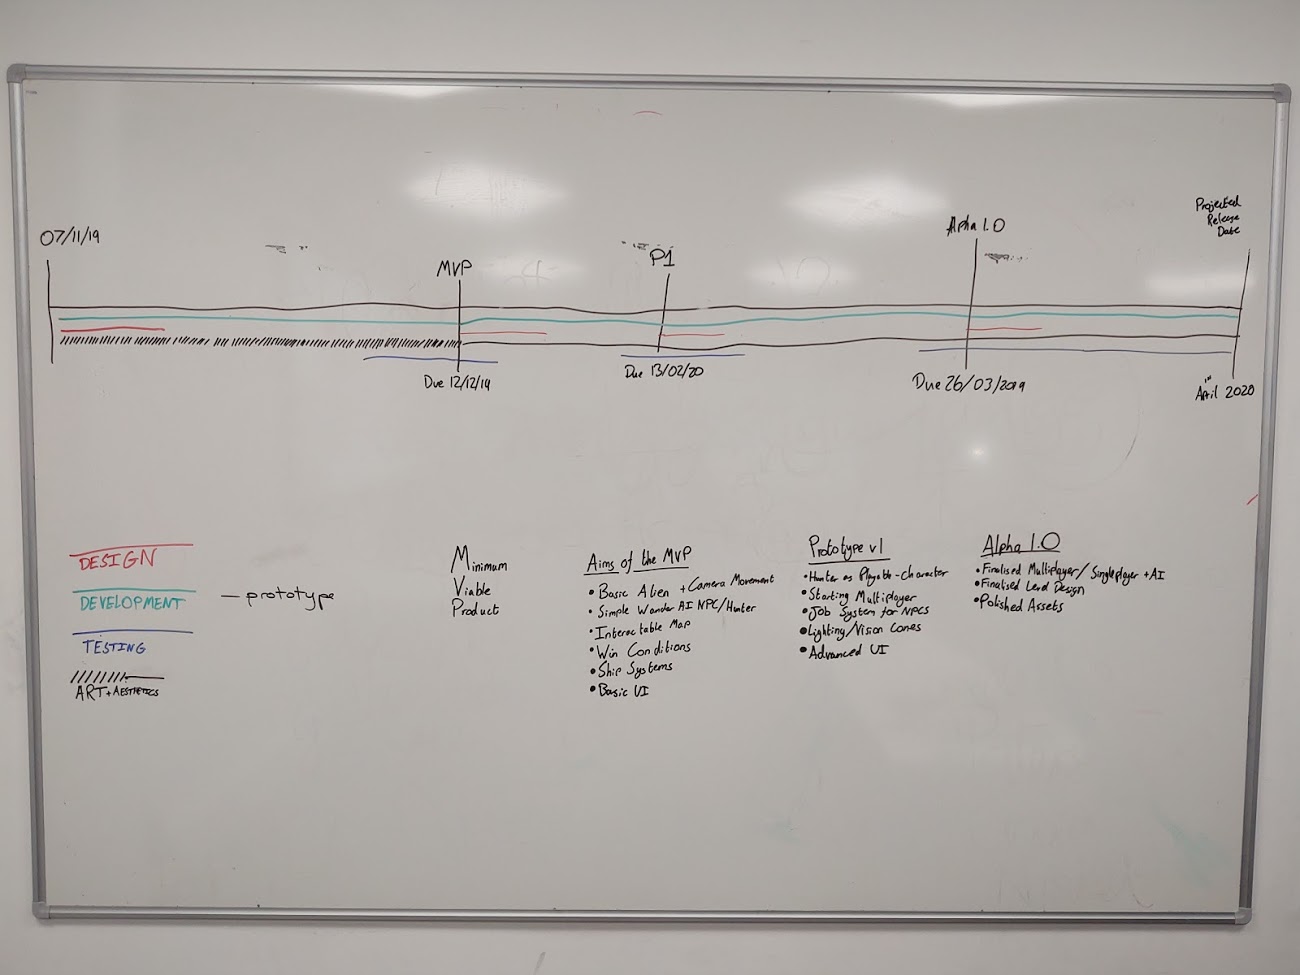 07/11/19
MVP
P1
Alpha 1.0
Projected
Release
Date
Due 12/12/19
Due 13/02/20
Due 26/03/2019
April 2020
DESIGN
DEVELOPMENT
— prototype
TESTING
ART + AESTHETICS
Minimum
Viable
Product
Aims of the MVP
• Basic Alien + Camera Movement
• Simple Wander AI NPC/Hunter
• Interactable Map
• Win Conditions
• Ship Systems
• Basic UI
Prototype v1
• Hunter as Playable-character
• Starting Multiplayer
• Job System for NPCs
• Lighting/Vision Cones
• Advanced UI
Alpha 1.0
• Finalised Multiplayer/Singleplayer + AI
• Finalised Level Design
• Polished Assets